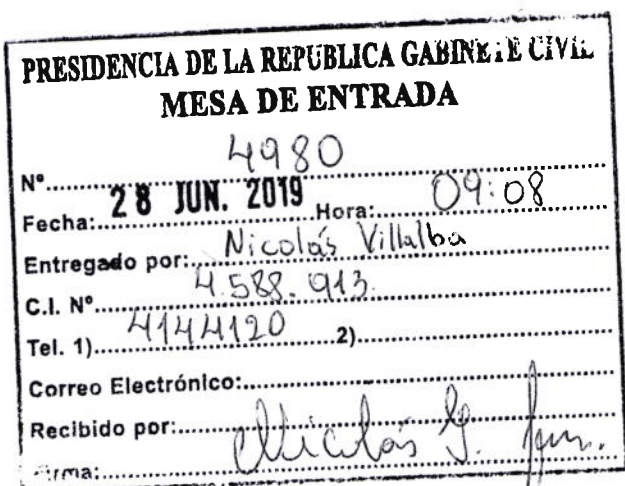 PRESIDENCIA DE LA REPÚBLICA GABINETE CIVIL
MESA DE ENTRADA
Nº 4980
Fecha: 28 JUN. 2019 Hora: 09:08
Entregado por: Nicolás Villalba
C.I. Nº 4.588.913.
Tel. 1) 4144120 2)
Correo Electrónico:
Recibido por: Nicolás G.
Firma: